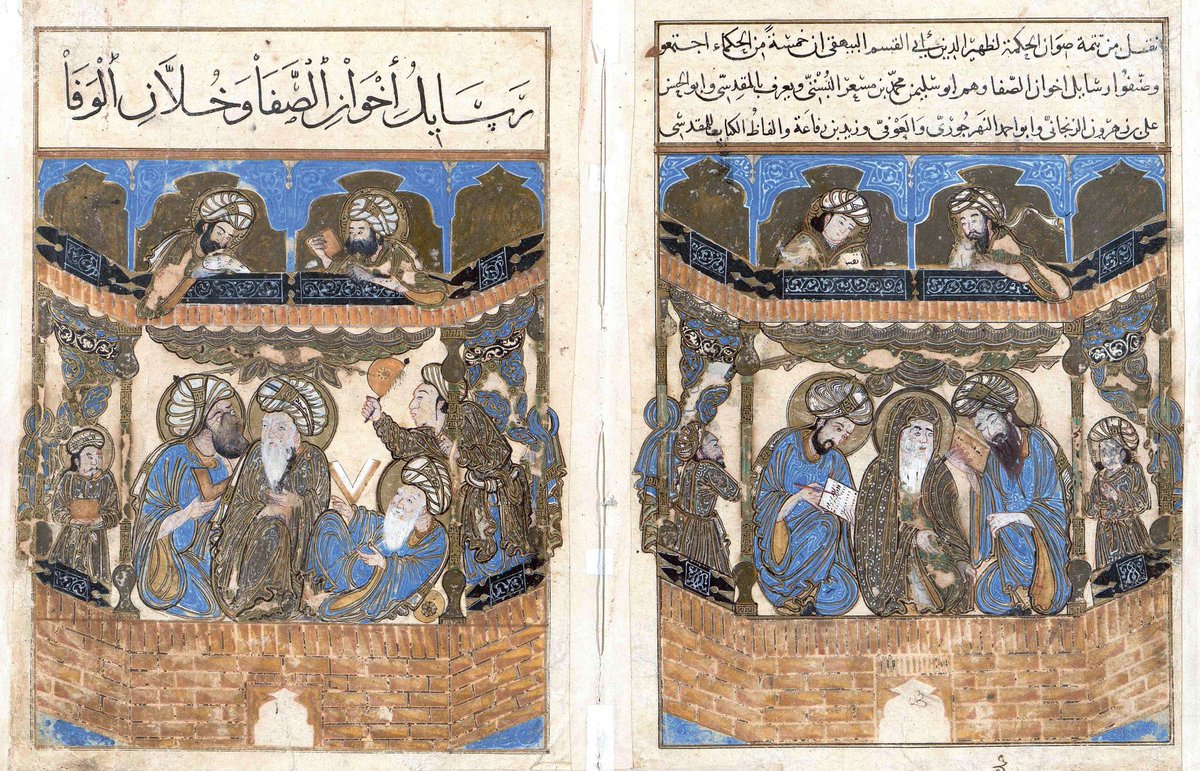 نقل من تتمة صوان الحكمة لظهير الدين أبي القسم البيهقى ان خمسة من الحكماء اجتمعو
وصنفوا رسايل اخوان الصفا وهم ابو سليمن محمد بن مسعر البستى ويعرف بالمقدسى وابو الحسن
على بن هرون الزنجانى وابو احمد النهرجورى والعوفى وزيد بن رفاعة والفاظ الكتاب للمقدسى
رسايل أخوان الصفا وخلان الوفا